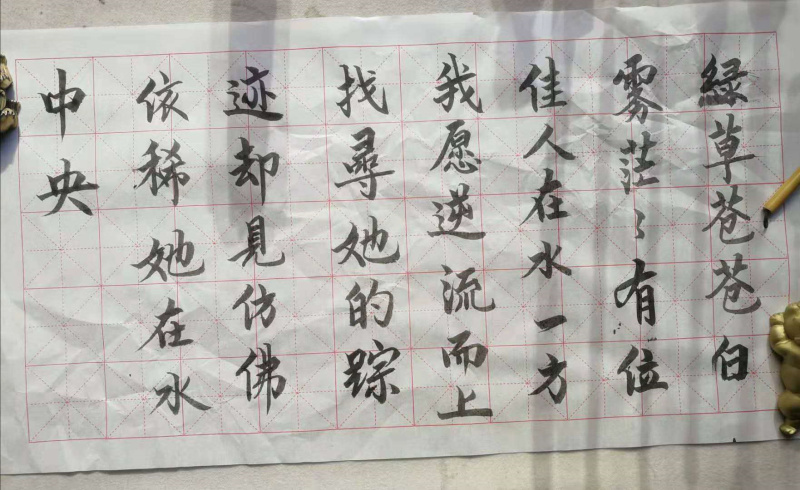 緑草苍苍白
雾茫〻有位
佳人在水一方
我愿逆流而上
找尋她的踪
迹却見仿佛
依稀她在水
中央